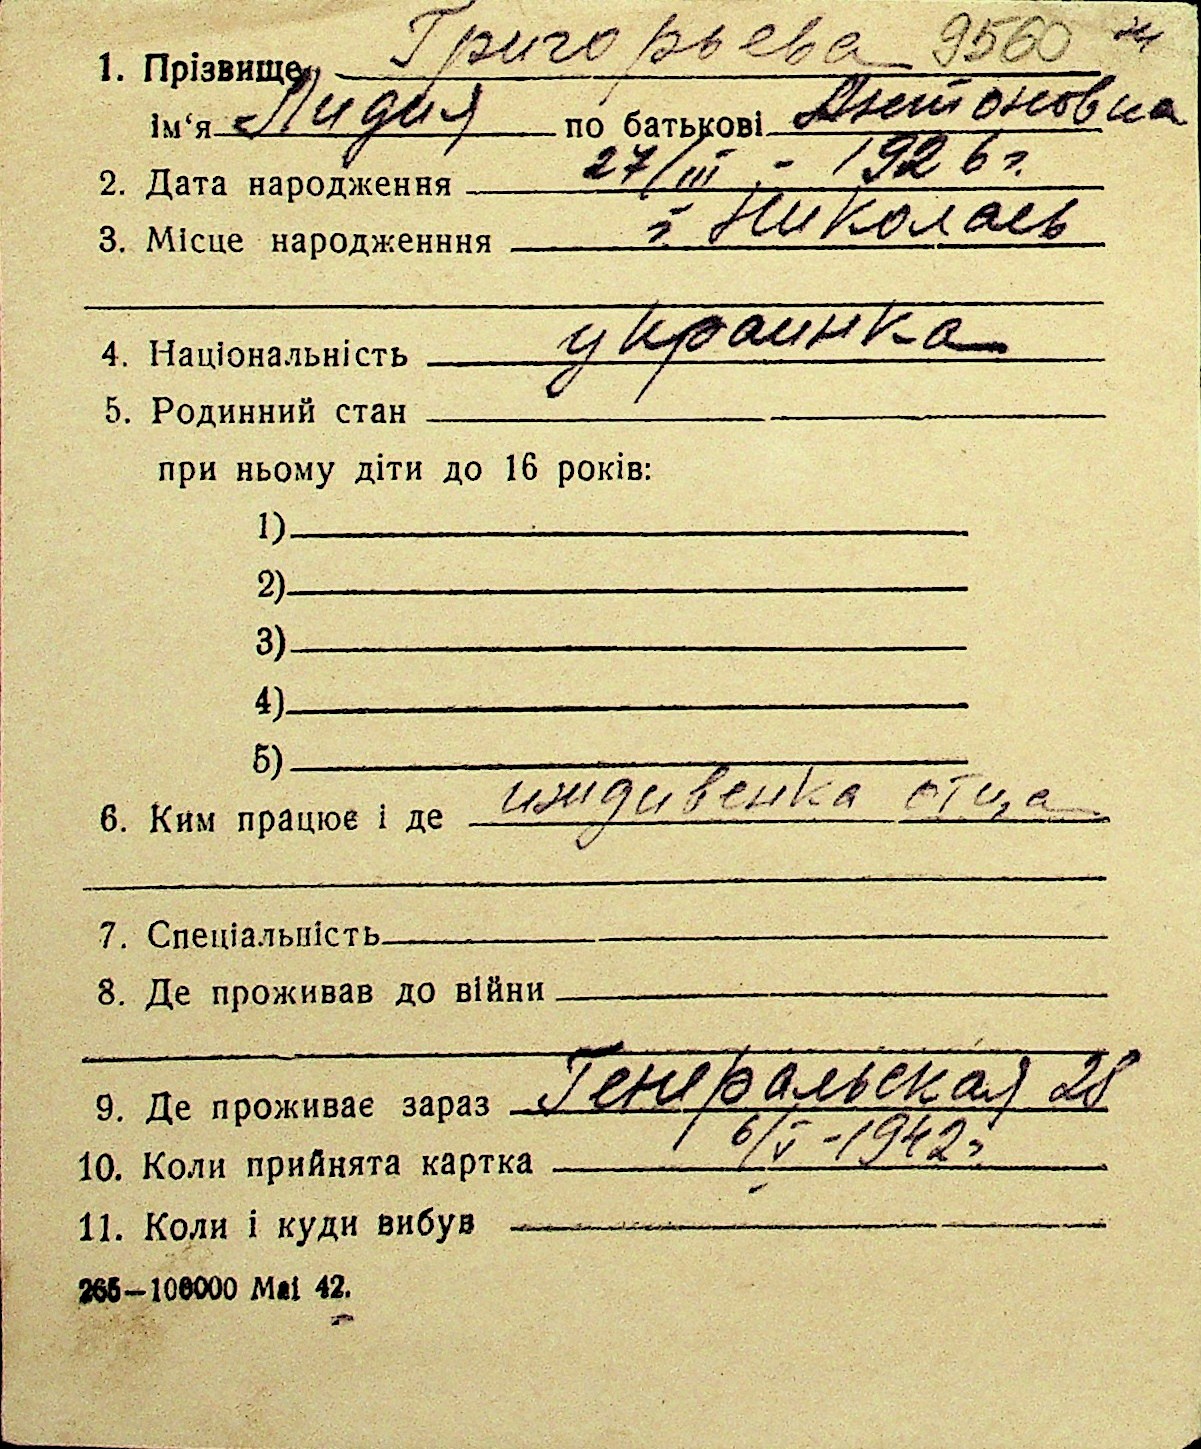 1. Прізвище Григорьева 9560
ім‘я Лидия по батькові Антоновна
2. Дата народження 27/III - 1926 г.
3. Місце народженння г. Николаев
4. Національність украинка
5. Родинний стан
при ньому діти до 16 років:
1)
2)
3)
4)
5)
6. Ким працює і де иждивенка отца
7. Спеціальність
8. Де проживав до війни
9. Де проживає зараз Генеральская 28
10. Коли прийнята картка 6/V - 1942 г.
11. Коли і куди вибув
265—100000 Маі 42.